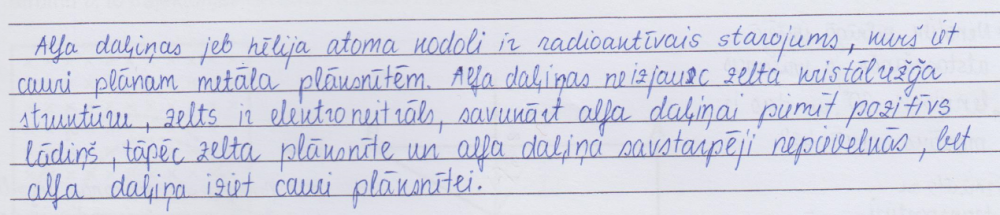 Alfa daļiņas jeb hēlija atoma kodoli ir radioaktīvais starojums, kurš iet
cauri plānam metāla plāksnītēm. Alfa daļiņas neizjauc zelta kristālrežģa
struktūru, zelts ir elektroneitrāls, savukārt alfa daļiņai piemīt pozitīvs
lādiņš, tāpēc zelta plāksnīte un alfa daļiņa savstarpēji nepievelkās, bet
alfa daļiņa iziet cauri plāksnītei.